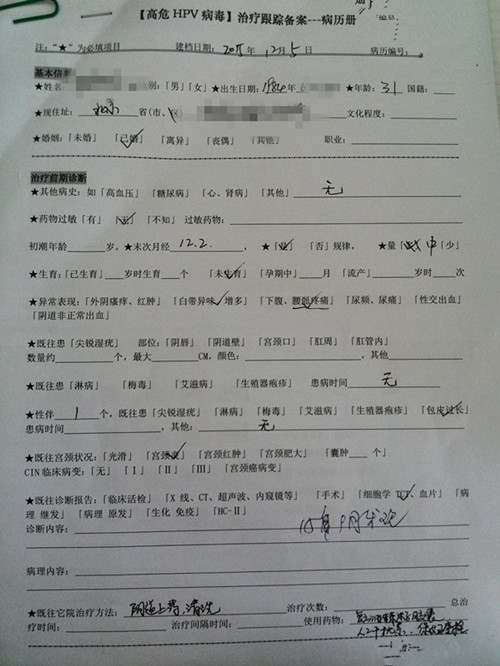 【高危 HPV 病毒】治疗跟踪备案---病历册
注："★"为必填项目 建档日期：2015年 12月 5日 病历编号：
基本信
★姓名 别：「男」「女」★出生日期：1984 ★年龄：31 国籍：
★现住址： 北京 省(市、区) 文化程度：
★婚姻：「未婚」 「已婚」 「离异」 「丧偶」 「其他」 职业：
治疗前期诊断
★其他病史：如「高血压」 「糖尿病」 「心、肾病」 「其他」 无
★药物过敏「有」 「无」 「不知」 过敏药物：
初潮年龄 岁。★末次月经 12.2. ，★「是」 「否」规律， ★量「 中「少」
★生育：「已生育」 岁时生育 个 「未生育」 「孕期中」 月 「流产」 岁时 次
★异常表现：「外阴瘙痒、红肿」 「白带异味、增多」 「下腹、腰骶疼痛」 「尿频、尿痛」 「性交出血」
「阴道非正常出血」
★既往患「尖锐湿疣」 部位：「阴唇」 「阴道壁」 「宫颈口」 「肛周」 「肛管内」
数量约 个，最大 CM，颜色： ,其他
★既往患「淋病」 「梅毒」 「艾滋病」 「生殖器疱疹」 患病时间 无
★性伴 1 个，既往患「尖锐湿疣」 「淋病」 「梅毒」 「艾滋病」 「生殖器疱疹」 「包皮过长」
患病时间 ，其他： 无
★既往宫颈状况：「光滑」 「宫颈 」 「宫颈红肿」 「宫颈肥大」 「囊肿 个」
CIN 临床病变：「无」 「Ⅰ」 「Ⅱ」 「Ⅲ」 「宫颈癌病变」
★既往诊断报告：「临床活检」 「X 线、CT、超声波、内窥镜等」 「手术」 「细胞学 、血片」 「病
理 继发」 「病理 原发」 「生化 免疫」 「HC-Ⅱ」
诊断内容： 15年9月
病理内容：
★既往它院治疗方法： 阴道上药，清洗 治疗次数： 总治
疗时间： 治疗间隔时间： 使用药物：